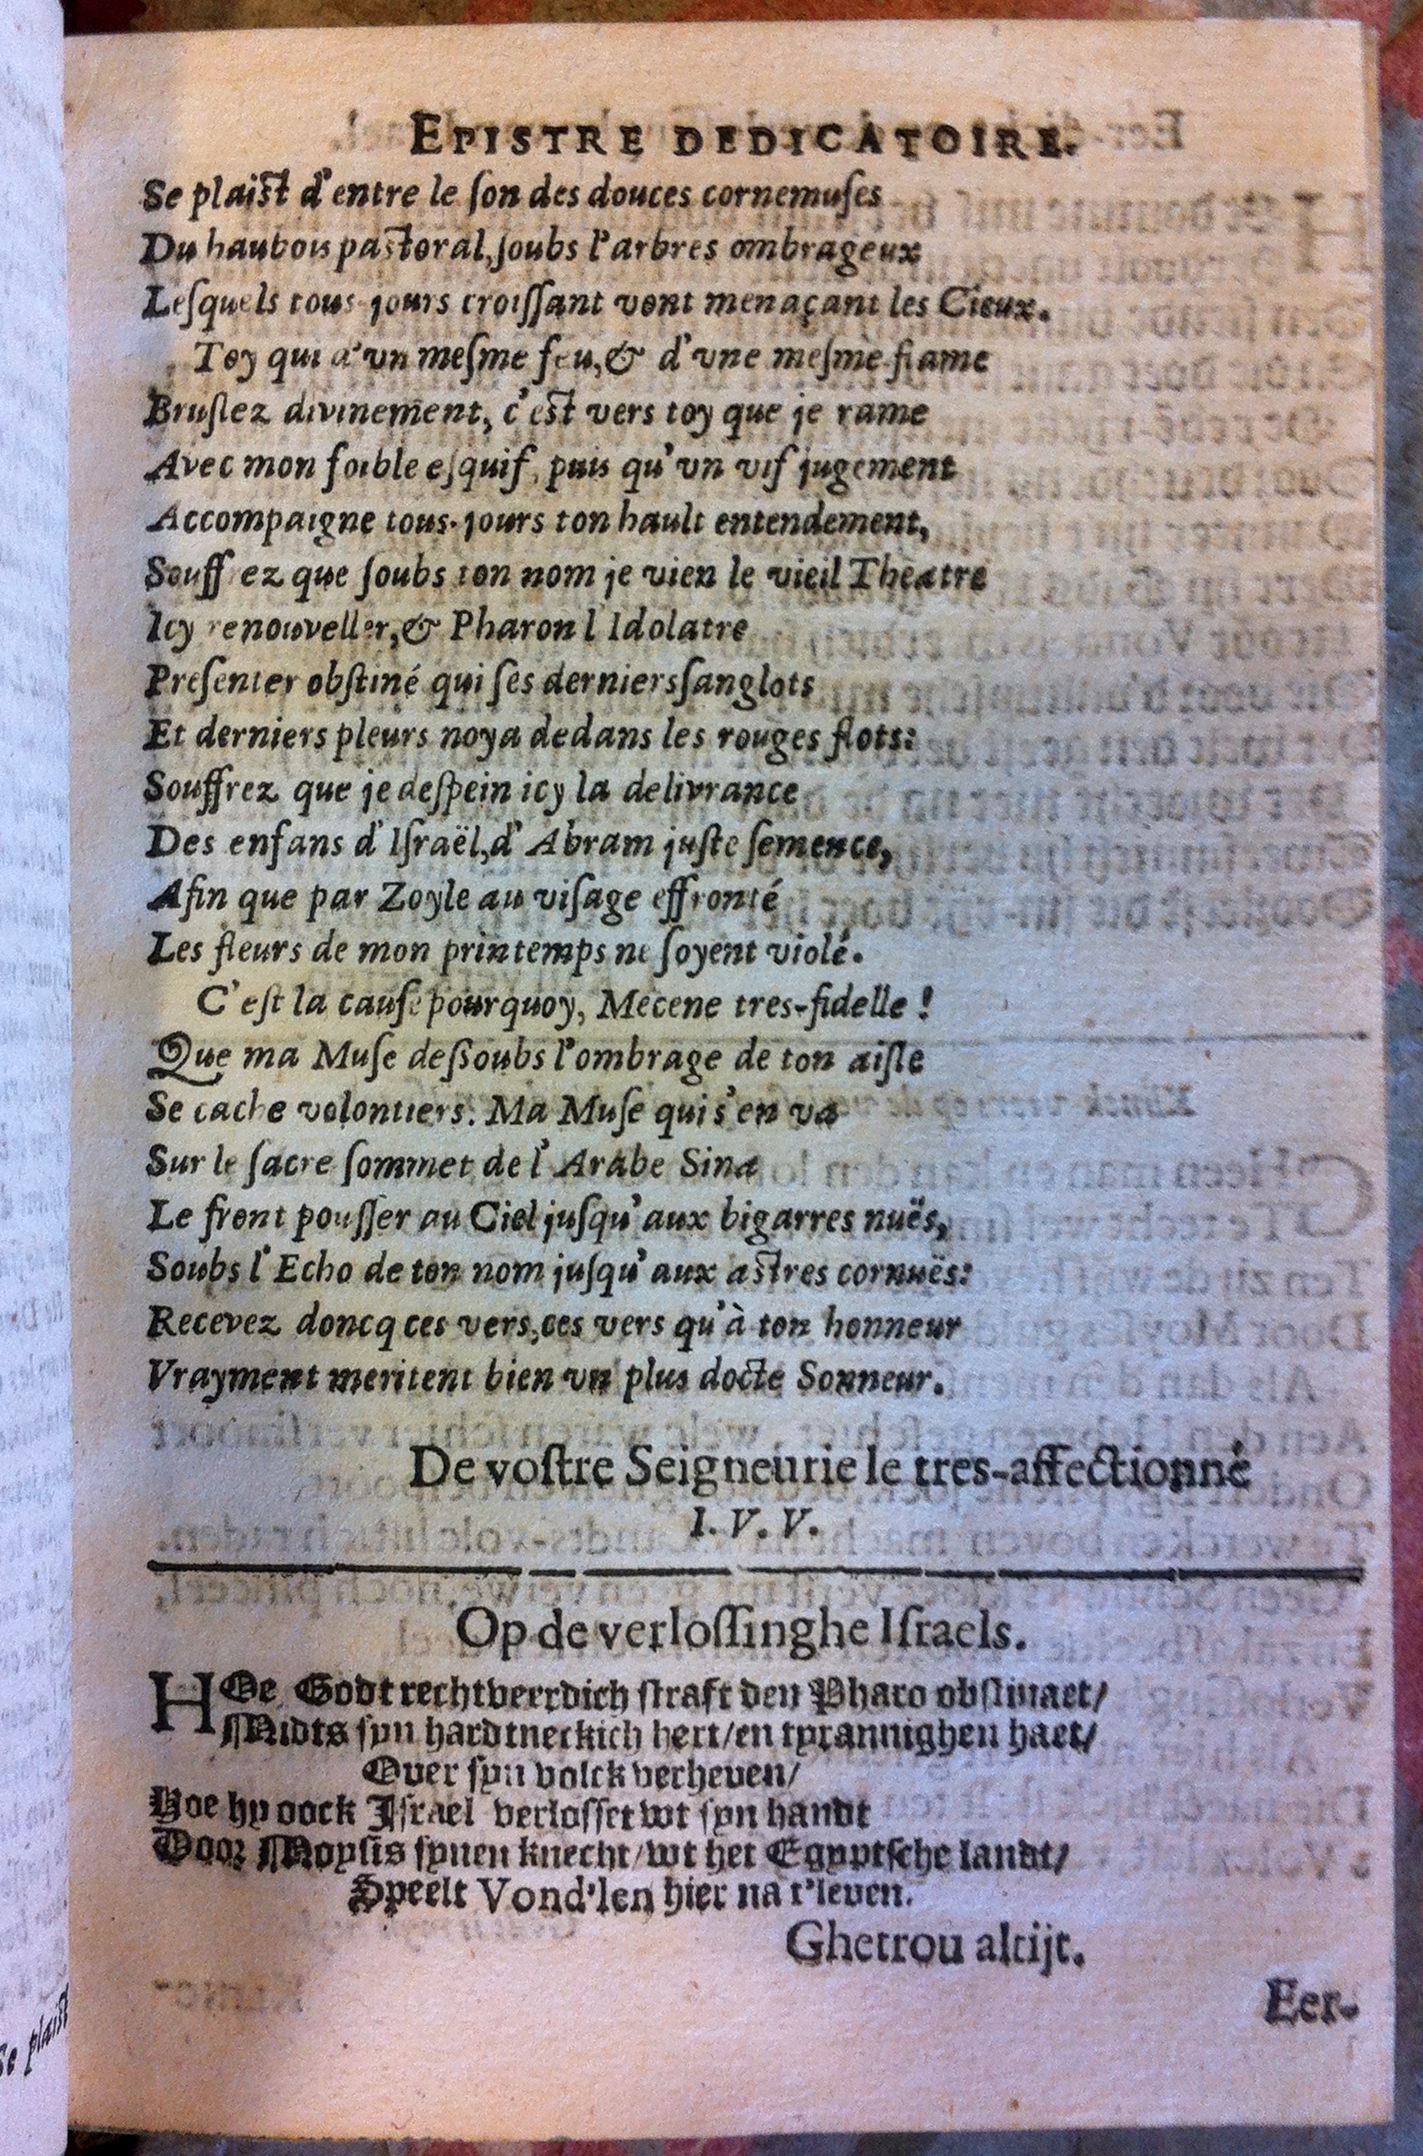 EPISTRE DEDICATOIRE.
Se plaist d'entre le ſon des douces cornemuſes
Du haubois pastoral, ſoubs l'arbres ombrageux
Leſquels tous-jours croiſſant vont menaçant les Cieux.
Toy qui d'vn meſme feu, & d'vne meſme flame
Bruſlez divinement, c'est vers toy que je rame
Avec mon foible eſquif, puis qu'vn vif jugement
Accompaigne tous-jours ton hault entendement,
Souffrez que ſoubs ton nom je vien le vieil Theatre
Icy renouveller, & Pharon l'Idolatre
Preſenter obſtiné qui ſes derniers ſanglots
Et derniers pleurs noya dedans les rouges flots:
Souffrez que je deſpein icy la delivrance
Des enfans d'Iſraël, d'Abram juſte ſemence,
Afin que par Zoyle au viſage effronté
Les fleurs de mon printemps ne ſoyent violé.
C'eſt la cauſe pourquoy, Mecene tres-fidelle!
Que ma Muſe deſſoubs l'ombrage de ton aiſle
Se cache volontiers. Ma Muſe qui s'en va
Sur le ſacre ſommet de l'Arabe Sina
Le front pouſſer au Ciel juſqu'aux bigarres nuës,
Soubs l'Echo de ton nom juſqu'aux astres cornuës:
Recevez doncq ces vers, ces vers qu'à ton honneur
Vrayment meritent bien vn plus docte Sonneur.
De voſtre Seigneurie le tres-affectionné
I. V. V.
Op de verloſſinghe Iſraels.
HOe Godt rechtveerdich ſtraft den Pharo obſtinaet/
Midts ſyn hardtneckich hert/en tyrannighen haet/
Over ſyn volck verheven/
Hoe hy oock Iſrael verloſſet wt ſyn handt
Door Moyſis ſynen knecht/wt het Egyptſche landt/
Speelt Vond'len hier na t'leven.
Ghetrou altijt.
Eer-
Se plaist